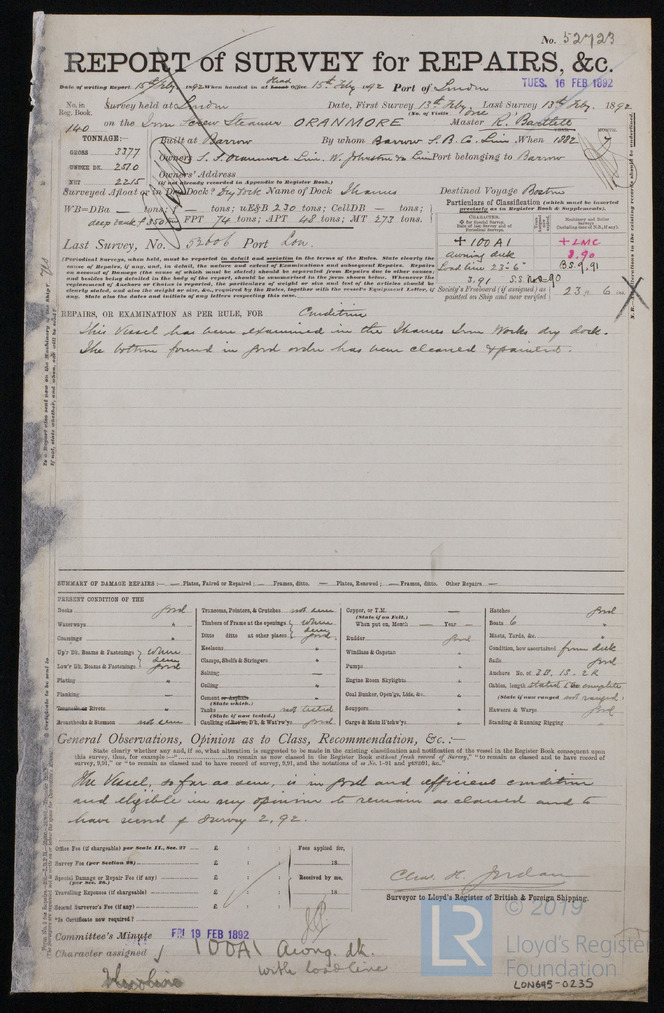 No. 52723
REPORT of SURVEY for REPAIRS, &c.
Date of writing Report 15th Feby 1892 When handed in at Head Office 15th Feby 1892 Port of London
TUES. 16 FEB 1892
No. in Reg. Book. Survey held at London Date, First Survey 13th Feby. Last Survey 13th Feby. 1892
(No. of Visits One)
140 on the Iron Screw Steamer ORANMORE Master R. Bartlett
TONNAGE:— Built at Barrow By whom Barrow S. B. Co. Lim. When 1882 MONTH. 7
GROSS 3377
UNDER DK. 2510 Owners S. S. Oranmore Lim. W. Johnston & Co Lim Port belonging to Barrow
NET 2215 Owners' Address
(If not already recorded in Appendix to Register Book.)
Surveyed Afloat or in Dry Dock? Dry Dock Name of Dock Thames Destined Voyage Boston
WB=DBa — tons; f — tons; uE&B 230 tons; CellDB — tons;
deep tank f 350 tons FPT 74 tons; APT 48 tons; MT 273 tons.
Particulars of Classification (which must be inserted precisely as in Register Book & Supplements).
CHARACTER.
+ 100 A1
Awning deck
Load line 23'-6"
3.91 S.S. No 2-90
+ LMC
8.90
B.S. 9.91
Society's Freeboard (if assigned) as painted on Ship and now verified } 23 ft. 6 ins.
Last Survey, No. 52006 Port Lon.
(Periodical Surveys, when held, must be reported in detail and seriatim in the terms of the Rules. State clearly the cause of Repairs, if any, and, in detail, the nature and extent of Examinations and subsequent Repairs. Repairs on account of Damage (the cause of which must be stated) should be separated from Repairs due to other causes; and besides being detailed in the body of the report, should be summarized in the form below. Whenever the replacement of Anchors or Chains is reported, the particulars of weight or size and test of the articles should be clearly stated, and also the weight or size, &c., required by the Rules, together with the vessel's Equipment Letter, if any. State also the dates and initials of any letters respecting this case.
REPAIRS, OR EXAMINATION AS PER RULE, FOR Condition
This Vessel has been examined in the Thames Iron Works dry dock.
The bottom found in good order has been cleaned & painted.
SUMMARY OF DAMAGE REPAIRS:— — Plates, Faired or Repaired; — Frames, ditto. — Plates, Renewed; — Frames, ditto. Other Repairs. —
PRESENT CONDITION OF THE
Decks good
Waterways "
Coamings "
Up'r Dk. Beams & Fastenings } where seen good
Low'r Dk. Beams & Fastenings
Plating "
Planking —
Treenails or Rivets "
Breasthooks & Stemson not seen
Transoms, Pointers, & Crutches not seen
Timbers of Frame at the openings } where seen good
Ditto ditto at other places
Keelsons "
Clamps, Shelfs & Stringers "
Salting —
Ceiling "
Cement or Asphalte (State which.) "
Tanks (State if now tested.) not tested
Caulking of Bottom D'k, & Wat'rw'ys good
Copper, or Y.M. (State if on Felt.) —
When put on, Month — Year —
Rudder good
Windlass & Capstan "
Pumps "
Engine Room Skylights "
Coal Bunker, Open'gs, Lids, &c. "
Scuppers "
Cargo & Main H'tchw'ys "
Hatches good
Boats 6 "
Masts, Yards, &c. "
Condition, how ascertained from deck
Sails good
Anchors No. of 3 B. 1 S. - 2 K
Cables, length stated to be complete
(State if now ranged) not ranged
Hawsers & Warps good
Standing & Running Rigging "
General Observations, Opinion as to Class, Recommendation, &c. :—
State clearly whether any and, if so, what alteration is suggested to be made in the existing classification and notification of the vessel in the Register Book consequent upon this survey, thus, for example :—"..................to remain as now classed in the Register Book without fresh record of Survey," "to remain as classed and to have record of survey, 9,91," or "to remain as classed and to have record of survey, 9,91, and the notations of ss No. 1-91 and ptND91, &c."
The Vessel, so far as seen, is in good and efficient condition
and eligible in my opinion to remain as classed and to
have record of survey 2,92.
Office Fee (if chargeable) per Scale II., Sec. 27 £ : :
Fees applied for,
Survey Fee (per Section 28) £ : :
18
Special Damage or Repair Fee (if any) (per Sec. 28.) £ : :
Received by me,
Travelling Expenses (if chargeable) £ : :
18
Second Surveyor's Fee (if any) £ : :
Is Certificate now required?
Chas. H. Jordan
Surveyor to Lloyd's Register of British & Foreign Shipping.
Committee's Minute FRI 19 FEB 1892
Character assigned 100A1 Awng. dk.
with load line
LR
© 2019
Lloyd's Register
Foundation
LON695-0235